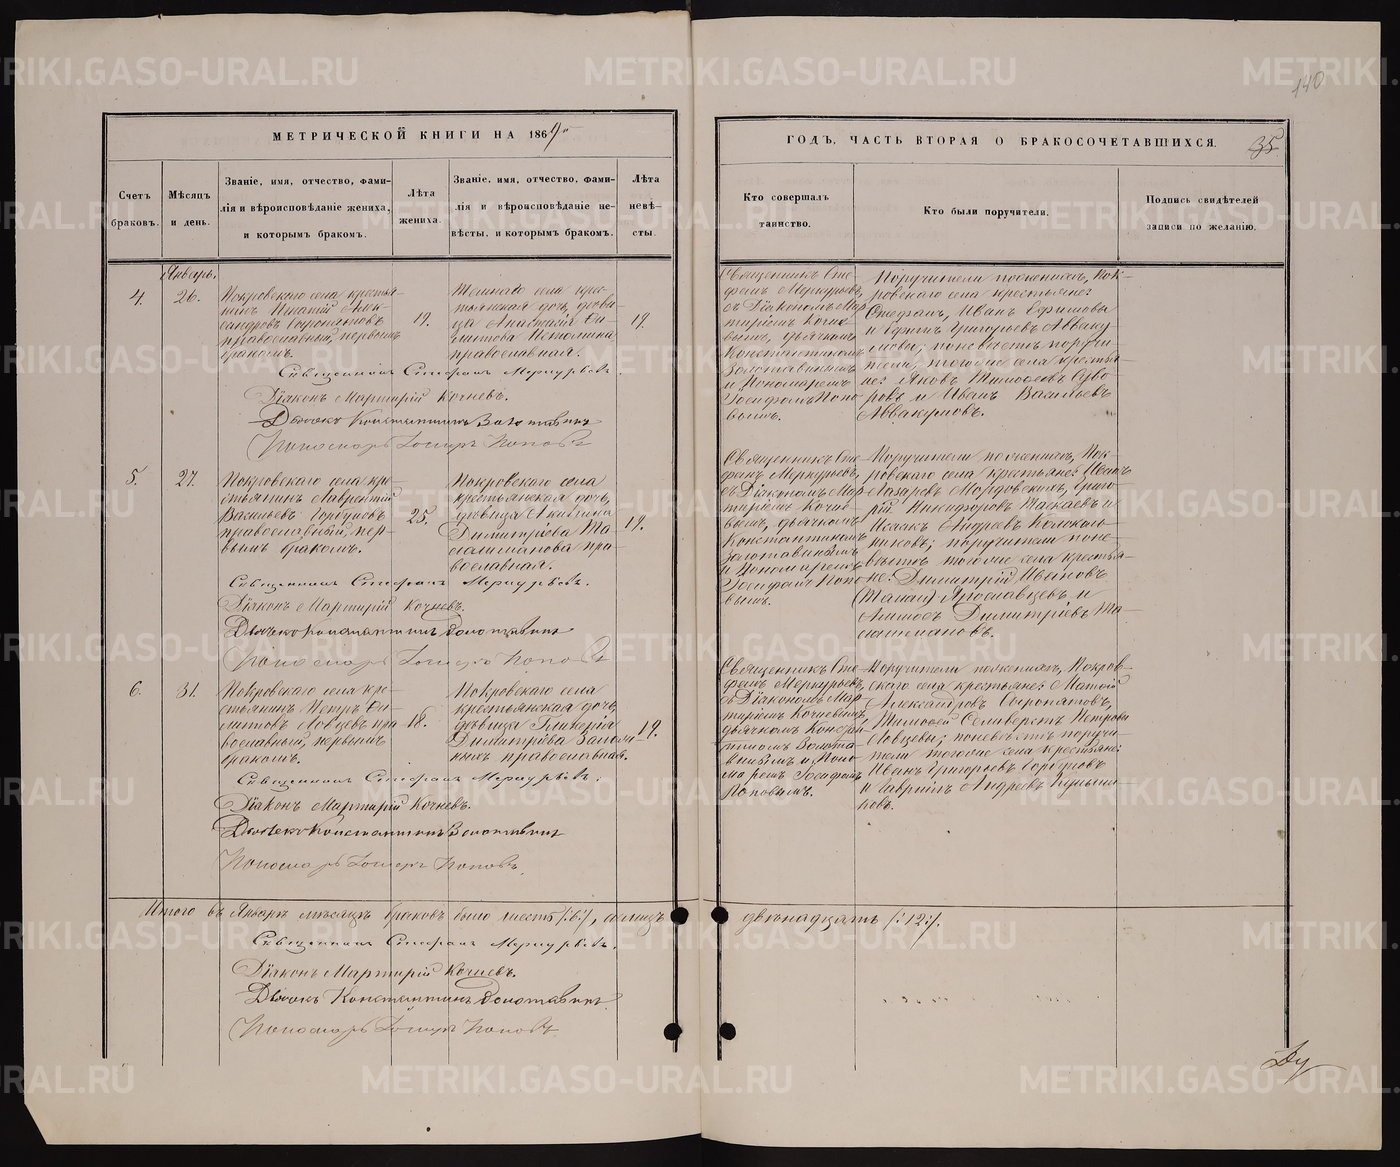 140
МЕТРИЧЕСКОЙ КНИГИ НА 1869
ГОДЪ, ЧАСТЬ ВТОРАЯ О БРАКОСОЧЕТАВШИХСЯ.
35
Счетъ браковъ.
Мѣсяцъ и день.
Званіе, имя, отчество, фами-
лія и вѣроисповѣданіе жениха,
и которымъ бракомъ.
Лѣта жениха.
Званіе, имя, отчество, фами-
лія и вѣроисповѣданіе не-
вѣсты, и которымъ бракомъ.
Лѣта невѣ-
сты.
Кто совершалъ
таинство.
Кто были поручители.
Подпись свидѣтелей
записи по желанію.
Январь.
4.
26.
Покровскаго села крестья-
нинъ Игнатій Алек-
сандровъ
православный, первымъ
бракомъ.
19.
села крес-
тьянская дочь, дѣви-
ца Анастасія Ди-
митова
православная.
19.
Священникъ Сте-
фанъ Меркурьевъ,
съ Діакономъ Мар-
тиріемъ Кочне-
вымъ, дьячкомъ
Константиномъ
Золотавинымъ
и Пономаремъ
Іосифомъ Попо-
вымъ.
Поручители по женихѣ, Пок-
ровскаго села крестьяне:
Стефанъ, Иванъ Ефимовы
и Ефимъ Григорьевъ Авваку-
мовы; по невѣстѣ поручи-
тели, тогоже села крестья-
не: Яковъ Тимофеевъ Суво-
ровъ и Иванъ Васильевъ
Аввакумовъ.
Священникъ Стефанъ Меркурьевъ.
Діаконъ Мартирій Кочневъ.
Дьячекъ Константинъ Золотавинъ
Пономарь Іосифъ Поповъ
5.
27.
Покровскаго села кре-
стьянинъ Лаврентій
Васильевъ Горбуновъ
православный, пер-
вымъ бракомъ.
25.
Покровскаго села
крестьянская дочь,
дѣвица Акилина
Димитріева
православная.
19.
Священникъ Сте-
фанъ Меркурьевъ,
съ Діакономъ Мар-
тиріемъ Кочне-
вымъ, дьячкомъ
Константиномъ
Золотавинымъ
и Пономаремъ
Іосифомъ Попо-
вымъ.
Поручители по женихѣ, Пок-
ровскаго села крестьяне: Иванъ
Лазаревъ Мордовскихъ, Григо-
рій Никифоровъ и
Исаакъ Андреевъ Колоколь-
никовъ; поручители по не-
вѣстѣ тогоже села крестья-
не: Димитрій Ивановъ
Ярославцевъ и
Димитріевъ
Священникъ Стефанъ Меркурьевъ.
Діаконъ Мартирій Кочневъ.
Дьячекъ Константинъ Золотавинъ
Пономарь Іосифъ Поповъ
6.
31.
Покровскаго села кре-
стьянинъ Петръ Ди-
митовъ Ловцевъ пра-
вославный, первымъ
бракомъ.
18.
Покровскаго села
крестьянская дочь,
дѣвица Гликерія
Димитріева
православная.
19.
Священникъ Сте-
фанъ Меркурьевъ,
съ Діакономъ Мар-
тиріемъ Кочневымъ,
дьячкомъ Констан-
тиномъ Золота-
винымъ и Поно-
маремъ Іосифомъ
Поповымъ.
Поручители по женихѣ, Покров-
скаго села крестьяне: Матвій
Александровъ
Тимофей Селиверстъ Петровы
Ловцевы; по невѣстѣ поручи-
тели тогоже села крестьяне:
Иванъ Григорьевъ Горбуновъ
и Гавріилъ Андреевъ
Священникъ Стефанъ Меркурьевъ.
Діаконъ Мартирій Кочневъ.
Дьячекъ Константинъ Золотавинъ
Пономарь Іосифъ Поповъ.
Итого въ Январѣ мѣсяцѣ браковъ было шесть /:6:/, а лицъ двенадцать /:12:/.
Священникъ Стефанъ Меркурьевъ.
Діаконъ Мартирій Кочневъ.
Дьячекъ Константинъ Золотавинъ
Пономарь Іосифъ Поповъ.
METRIKI.GASO-URAL.RU